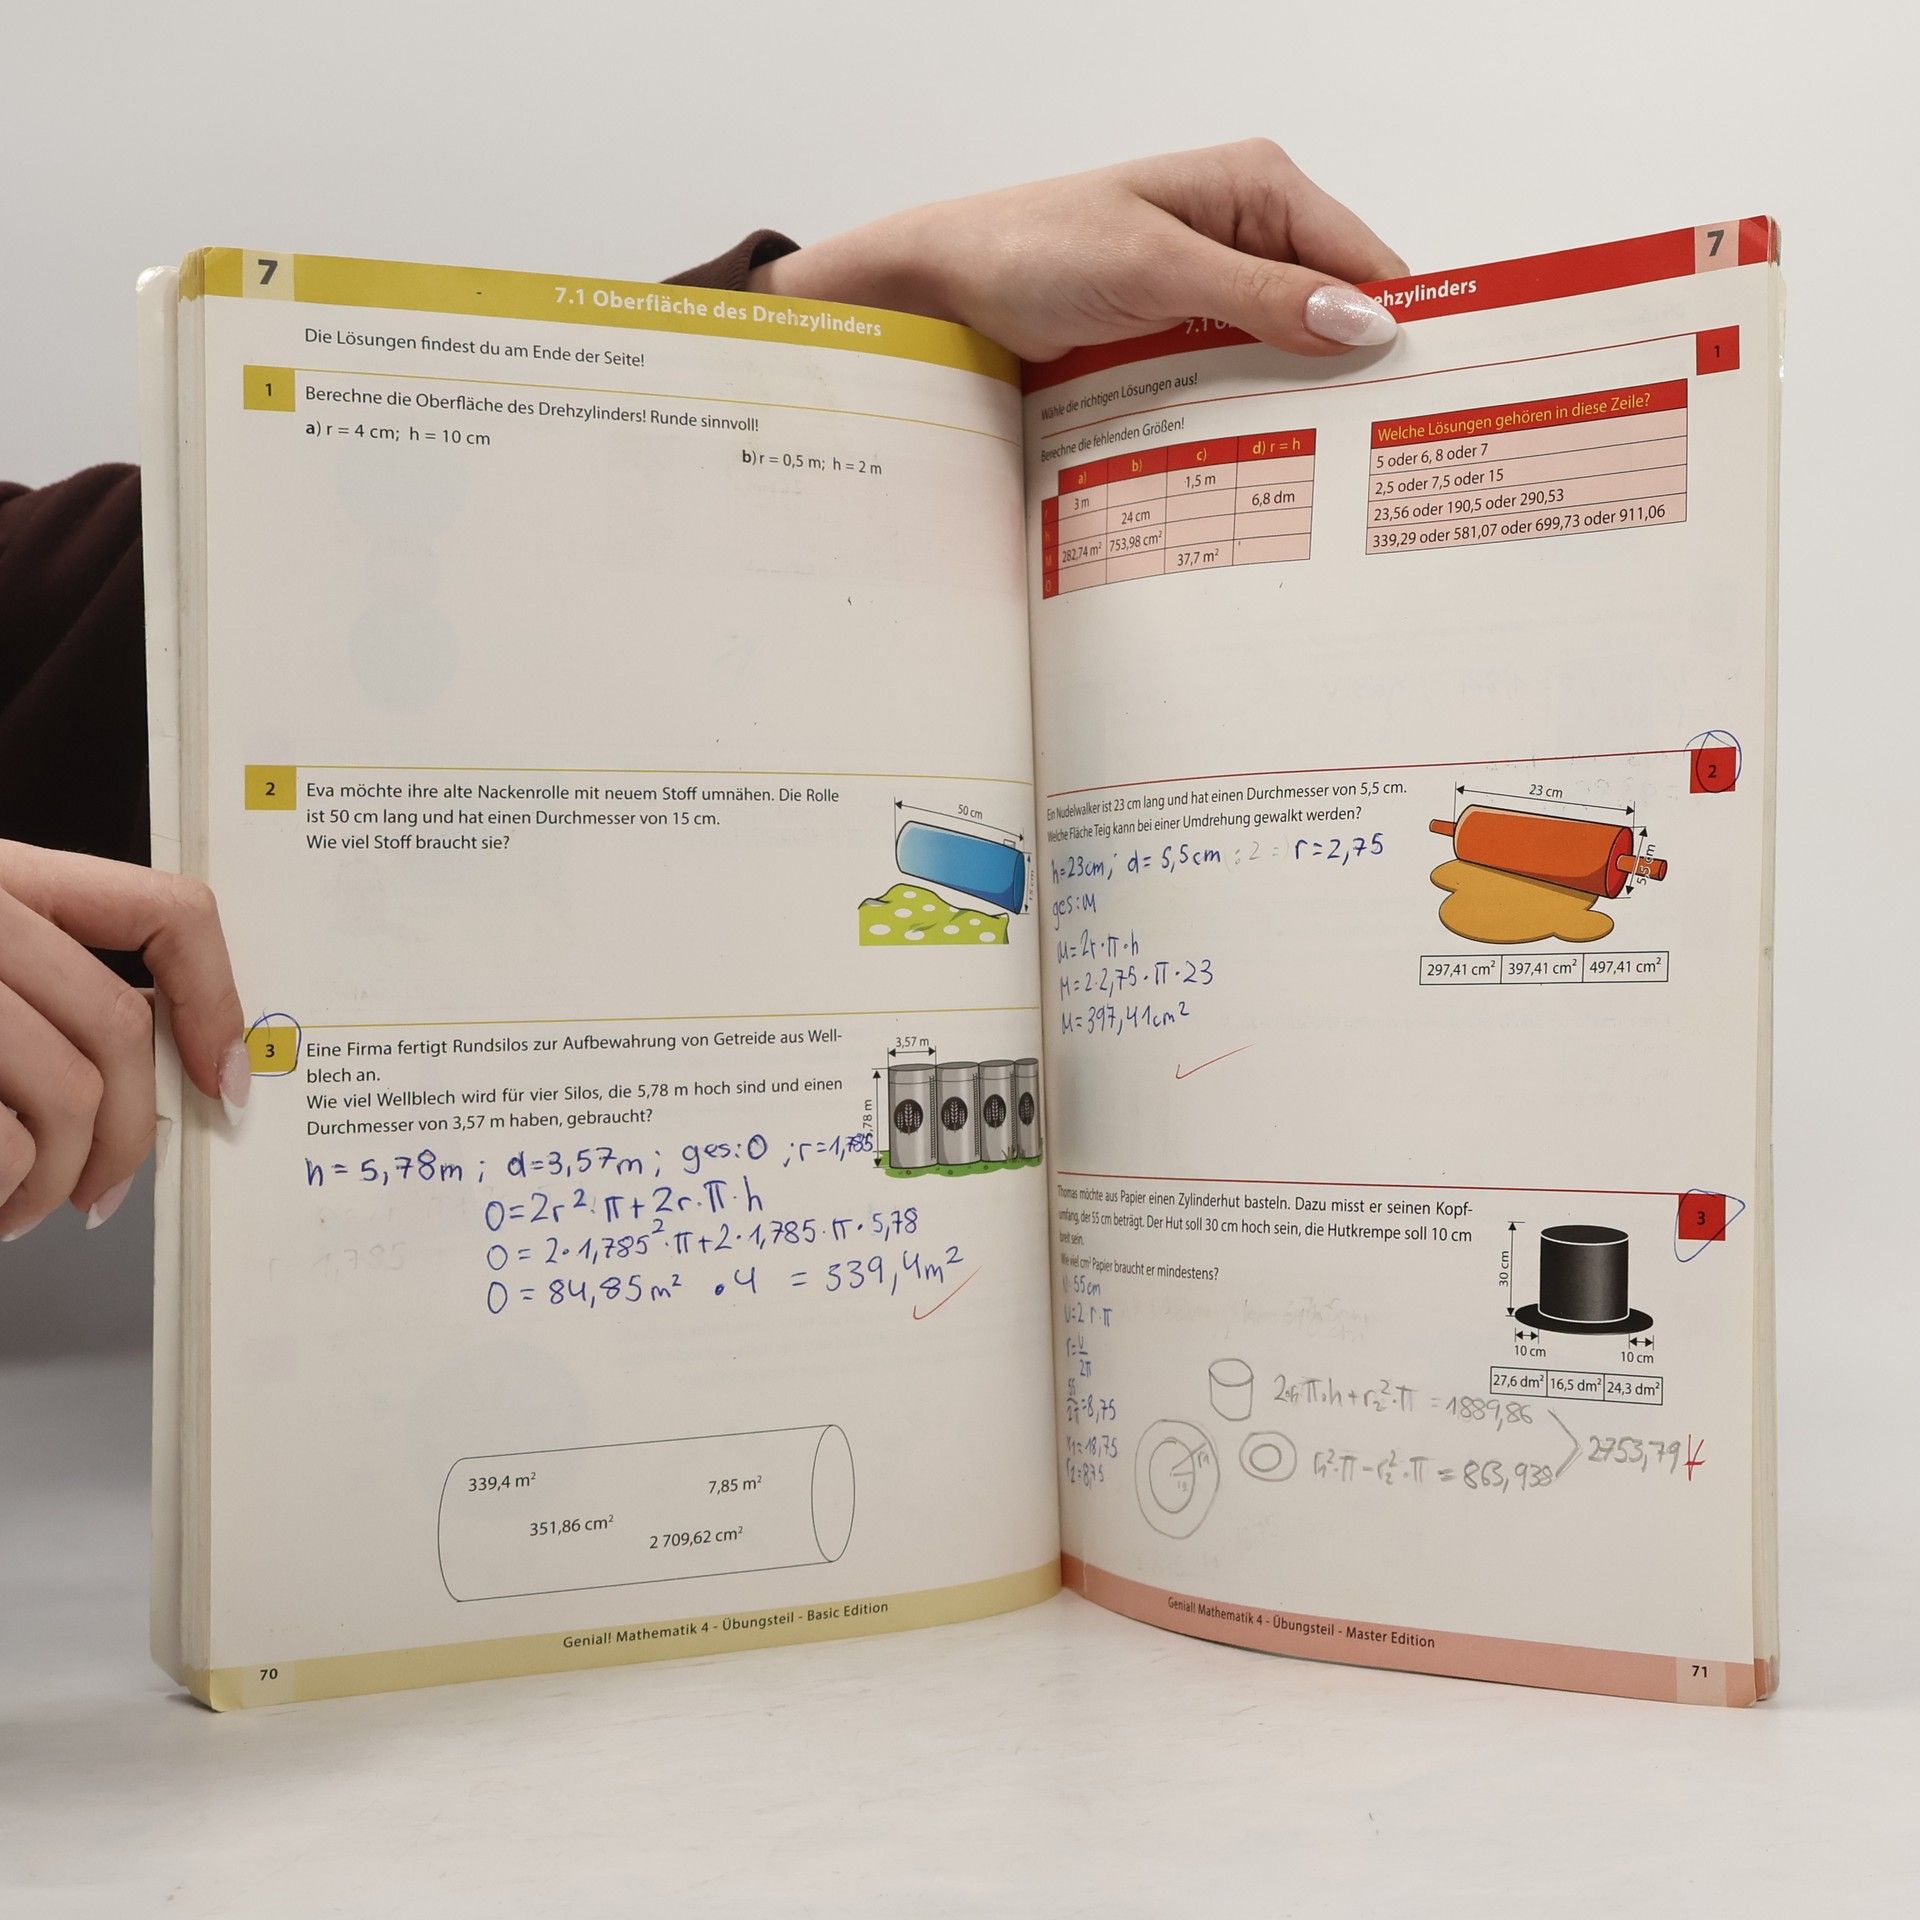 7
7.1 Oberfläche des Drehzylinders
Die Lösungen findest du am Ende der Seite!
1
Berechne die Oberfläche des Drehzylinders! Runde sinnvoll!
a) r = 4 cm; h = 10 cm
b) r = 0,5 m; h = 2 m
2
Eva möchte ihre alte Nackenrolle mit neuem Stoff umnähen. Die Rolle
ist 50 cm lang und hat einen Durchmesser von 15 cm.
Wie viel Stoff braucht sie?
50 cm
15 cm
3
Eine Firma fertigt Rundsilos zur Aufbewahrung von Getreide aus Well-
blech an.
Wie viel Wellblech wird für vier Silos, die 5,78 m hoch sind und einen
Durchmesser von 3,57 m haben, gebraucht?
3,57 m
,78 m
h = 5,78m ; d=3,57m ; ges: O ; r=1,785
O=2r²·π+2r·π·h
O = 2·1,785²·π+2·1,785·π·5,78
O = 84,85m² ·4 = 339,4m²
339,4 m²
7,85 m²
351,86 cm²
2 709,62 cm²
Genial! Mathematik 4 - Übungsteil - Basic Edition
70
7
7.1 O
ehzylinders
Wähle die richtigen Lösungen aus!
1
Berechne die fehlenden Größen!
a) b) c) d) r = h
r 3 m 1,5 m
h 24 cm 6,8 dm
M 282,74 m² 753,98 cm²
O 37,7 m²
Welche Lösungen gehören in diese Zeile?
5 oder 6, 8 oder 7
2,5 oder 7,5 oder 15
23,56 oder 190,5 oder 290,53
339,29 oder 581,07 oder 699,73 oder 911,06
2
Ein Nudelwalker ist 23 cm lang und hat einen Durchmesser von 5,5 cm.
Welche Fläche Teig kann bei einer Umdrehung gewalkt werden?
23 cm
5,5 cm
h=23cm; d= 5,5cm :2 = r=2,75
ges: M
M=2r·π·h
M=2·2,75·π·23
M=397,41cm²
297,41 cm² 397,41 cm² 497,41 cm²
3
Thomas möchte aus Papier einen Zylinderhut basteln. Dazu misst er seinen Kopf-
umfang, der 55 cm beträgt. Der Hut soll 30 cm hoch sein, die Hutkrempe soll 10 cm
breit sein.
Wie viel cm² Papier braucht er mindestens?
30 cm
10 cm
10 cm
27,6 dm² 16,5 dm² 24,3 dm²
U=55cm
U=2r·π
r=U/2π
55/2π=8,75
r1=18,75
r2=8,75
2·r2·π·h+r2²·π = 1889,86
r1²·π-r2²·π = 863,938
2753,79
r1
r2
Genial! Mathematik 4 - Übungsteil - Master Edition
71